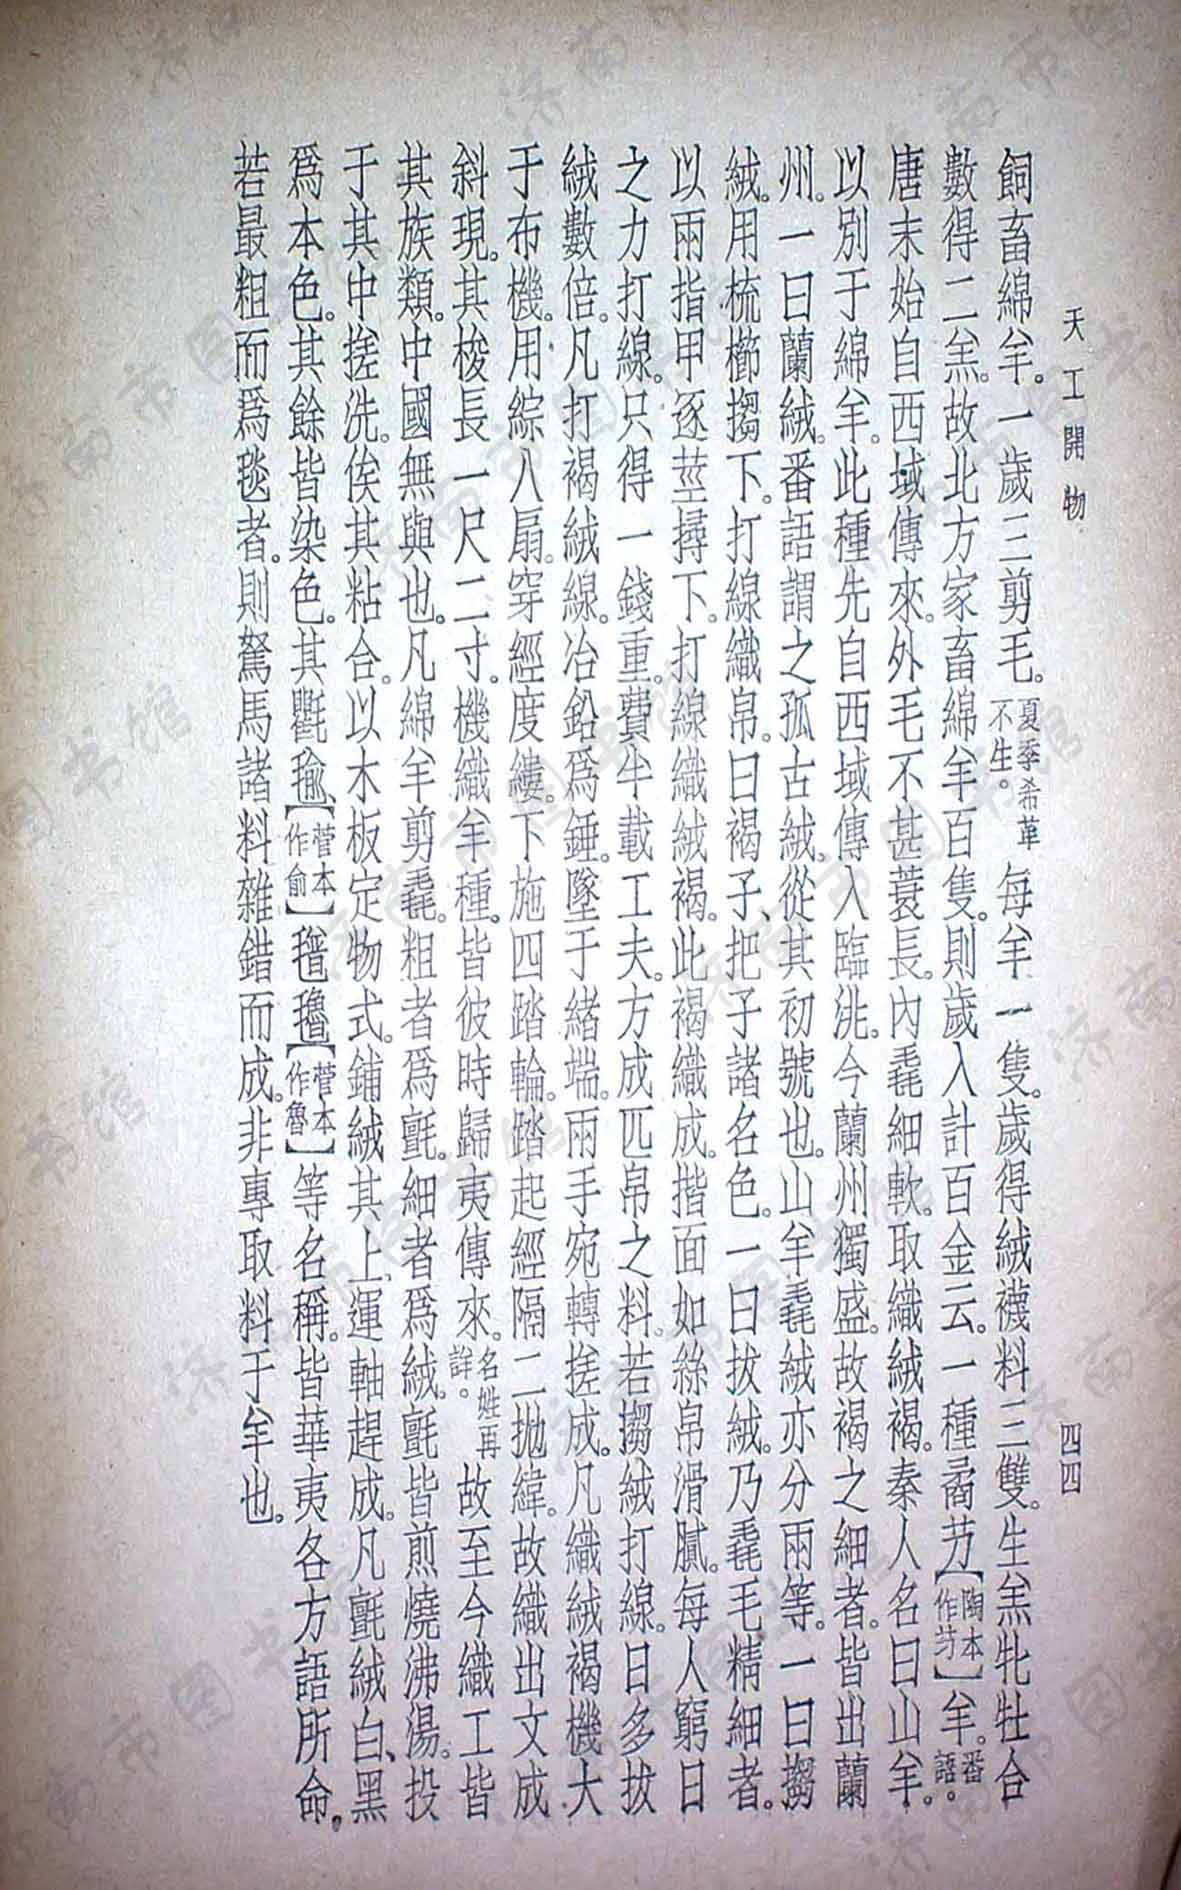 天工開物
四四
飼畜綿羊。一歲三剪毛。夏季希革不生。每羊一隻。歲得絨襪料三雙。生羔牝牡合
數得二羔。故北方家畜綿羊百隻。則歲入計百金云。一種矞艻【陶本作艿】羊。番語。
唐末始自西域傳來。外毛不甚蓑長。內毳細軟。取織絨褐。秦人名曰山羊。
以別于綿羊。此種先自西域傳入臨洮。今蘭州獨盛。故褐之細者。皆出蘭
州。一曰蘭絨。番語謂之孤古絨。從其初號也。山羊毳絨亦分兩等。一曰搊
絨。用梳櫛搊下。打線織帛。曰褐子、把子諸名色。一曰拔絨。乃毳毛精細者。
以兩指甲逐莖撏下。打線織絨褐。此褐織成。揩面如絲帛滑膩。每人窮日
之力打線。只得一錢重。費半載工夫。方成匹帛之料。若搊絨打線。日多拔
絨數倍。凡打褐絨線。冶鉛爲錘。墜于緒端。兩手宛轉搓成。凡織絨褐機大
于布機。用綜八扇。穿經度縷。下施四踏輪。踏起經隔二拋緯。故織出文成
斜現。其梭長一尺二寸。機織羊種。皆彼時歸夷傳來。名姓再詳。故至今織工皆
其族類。中國無與也。凡綿羊剪毳。粗者爲氈。細者爲絨。氈皆煎燒沸湯。投
于其中搓洗。俟其粘合。以木板定物式。鋪絨其上、運軸趕成。凡氈絨白、黑
爲本色。其餘皆染色。其氍毹【菅本作俞】氆氌【菅本作魯】等名稱。皆華夷各方語所命。
若最粗而爲毯者。則駑馬諸料雜錯而成。非專取料于羊也。